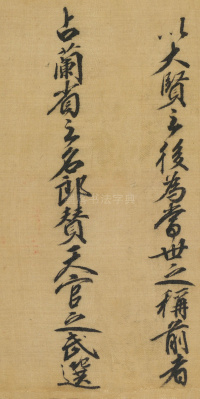 以大賢之後為當世之稱前者
占蘭省之名郎贊天官之武選